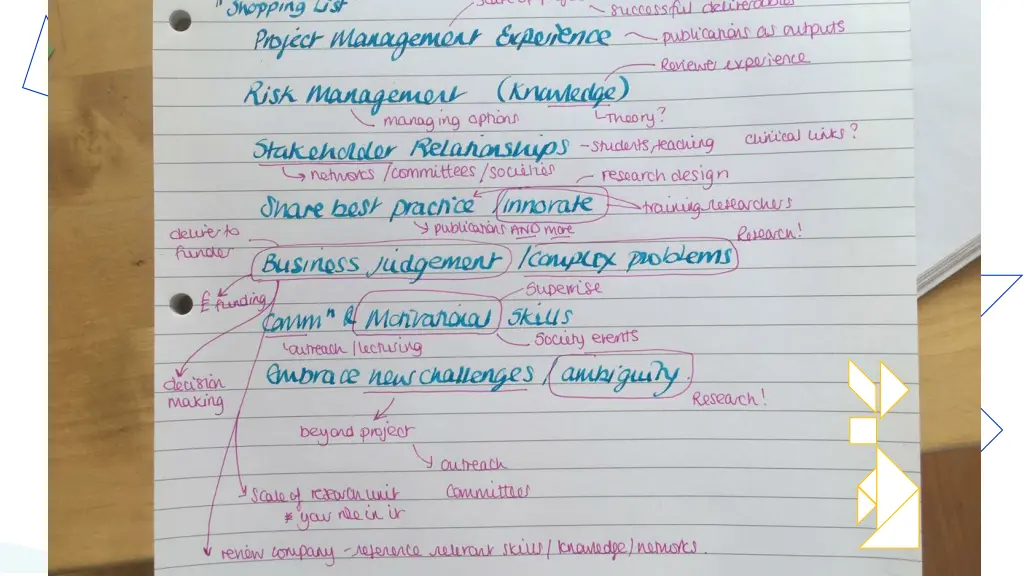 "Shopping List
successful deliverables
Project Management Experience
publications as outputs
Reviewer experience
Risk Management (Knowledge)
managing options
Theory?
Stakeholder Relationships - students, teaching
clinical links?
networks/committees/societies
research design
Share best practice /innovate
training researchers
publications AND more
deliver to
funder
Research!
Business judgement /complex problems
£ funding
Supervise
Comm" & Motivational Skills
outreach/lecturing
Society events
Embrace new challenges / ambiguity.
decision
making
Research!
beyond project
outreach
Scale of research unit
Committees
* your role in it
review company - reference relevant skills/knowledge/networks.